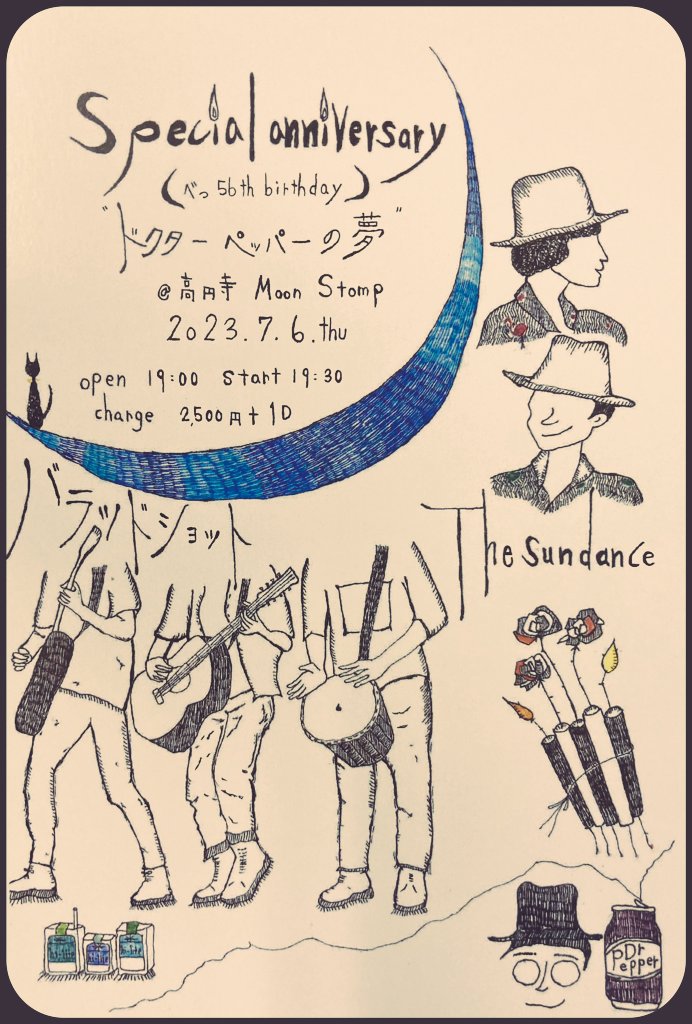 Special anniversary
(べっ 56th birthday)
"ドクターペッパーの夢"
@高円寺 Moon Stomp
2023.7.6.thu
open 19:00 start 19:30
charge 2,500円+1D
バラッドショット
The Sundance
Dr
Pepper